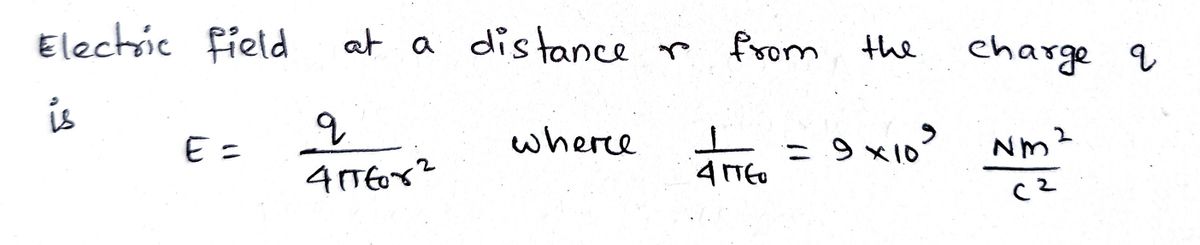 Electric field at a distance r from the charge q
is
E = q / 4πϵ₀r² where 1 / 4πϵ₀ = 9 × 10⁹ Nm² / C²